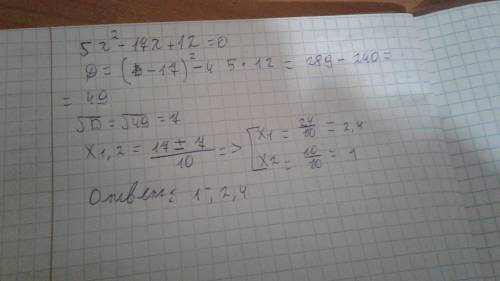 5x² - 17x + 12 = 0
D = (-17)² - 4 5 · 12 = 289 - 240 =
= 49
√D = √49 = 7
x1,2 = (17 ± 7)/10 => [x1 = 24/10 = 2,4
x2 = 10/10 = 1
Ответ: 1; 2,4